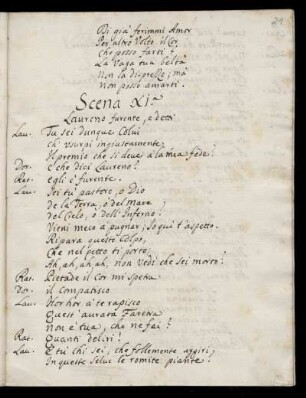 Di già ferimmi Amor
Per altro Volto il Cor,
Che posso farti?
La Vaga tua beltà
Non la disprezzo; mà
non posso amarti.
Scena XI.
Laureno furente, e detti
Lau. Tu sei dunque Colui
ch' usurpi ingiustamente,
Il premio che si deve à la mia fede?
Dor. E che dici Laureno?
Ras. egli è furente.
Lau. Sei tù pastore, o Dio
de la Terra, ò del mare,
del Cielo, ò dell' Inferno?
Vieni meco à pugnar, Io quì t'aspetto.
Ripara questo Colpo,
Che nel petto ti porto;
Ah, ah, ah, ah, non Vedi che sei morto?
Ras. Pietade il Cor mi spetra
Dor. il Compatisco.
Lau. Hor hor à te rapisco
Quest' aurata Faretra
non è tua, che ne fai?
Ras. Quanti deliri!
Lau. E tù chi sei, che follemente aggiri,
In queste Selve le romite piante?